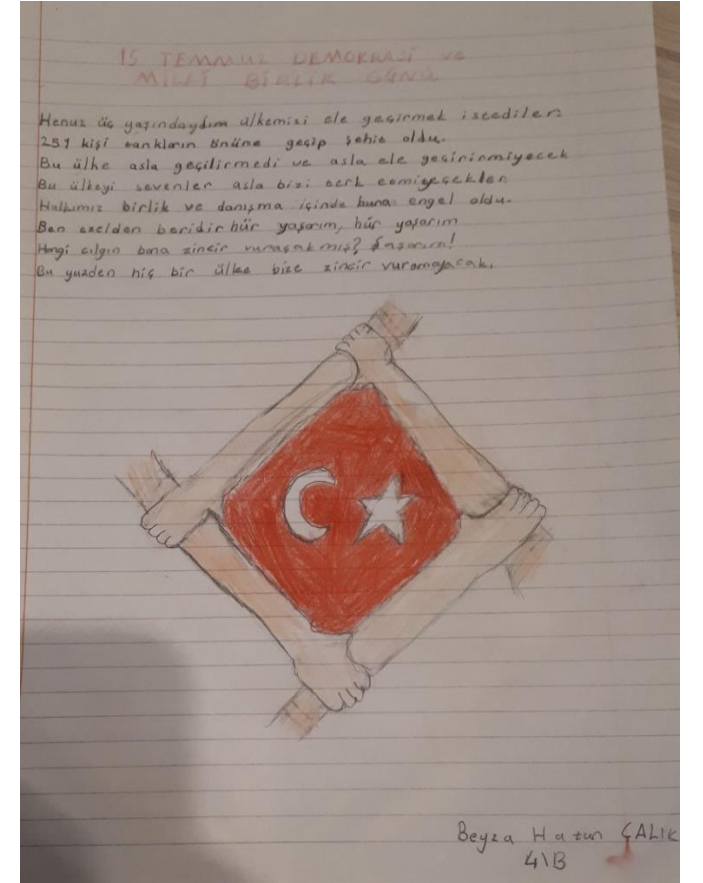 15 TEMMUZ DEMOKRASİ ve
MİLLİ BİRLİK GÜNÜ
Henüz üç yaşındaydım ülkemizi ele geçirmek istediler
251 kişi tankların önüne geçip şehit oldu.
Bu ülke asla geçilirmedi ve asla ele geçirinmiyecek
Bu ülkeyi sevenler asla bizi terk etmiyecekler
Halkımız birlik ve danışma içinde buna engel oldu.
Ben ezelden beridir hür yaşarım, hür yaşarım
Hangi çılgın bana zincir vuracakmış? Şaşarım!
Bu yüzden hiç bir ülke bize zincir vuramayacak.
Beyza Hatun ÇALIK
4\B